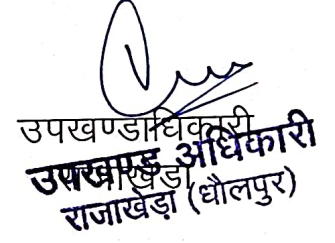 उपखण्डाधिकारी
उपखण्ड अधिकारी
राजाखेड़ा
राजाखेड़ा (धौलपुर)